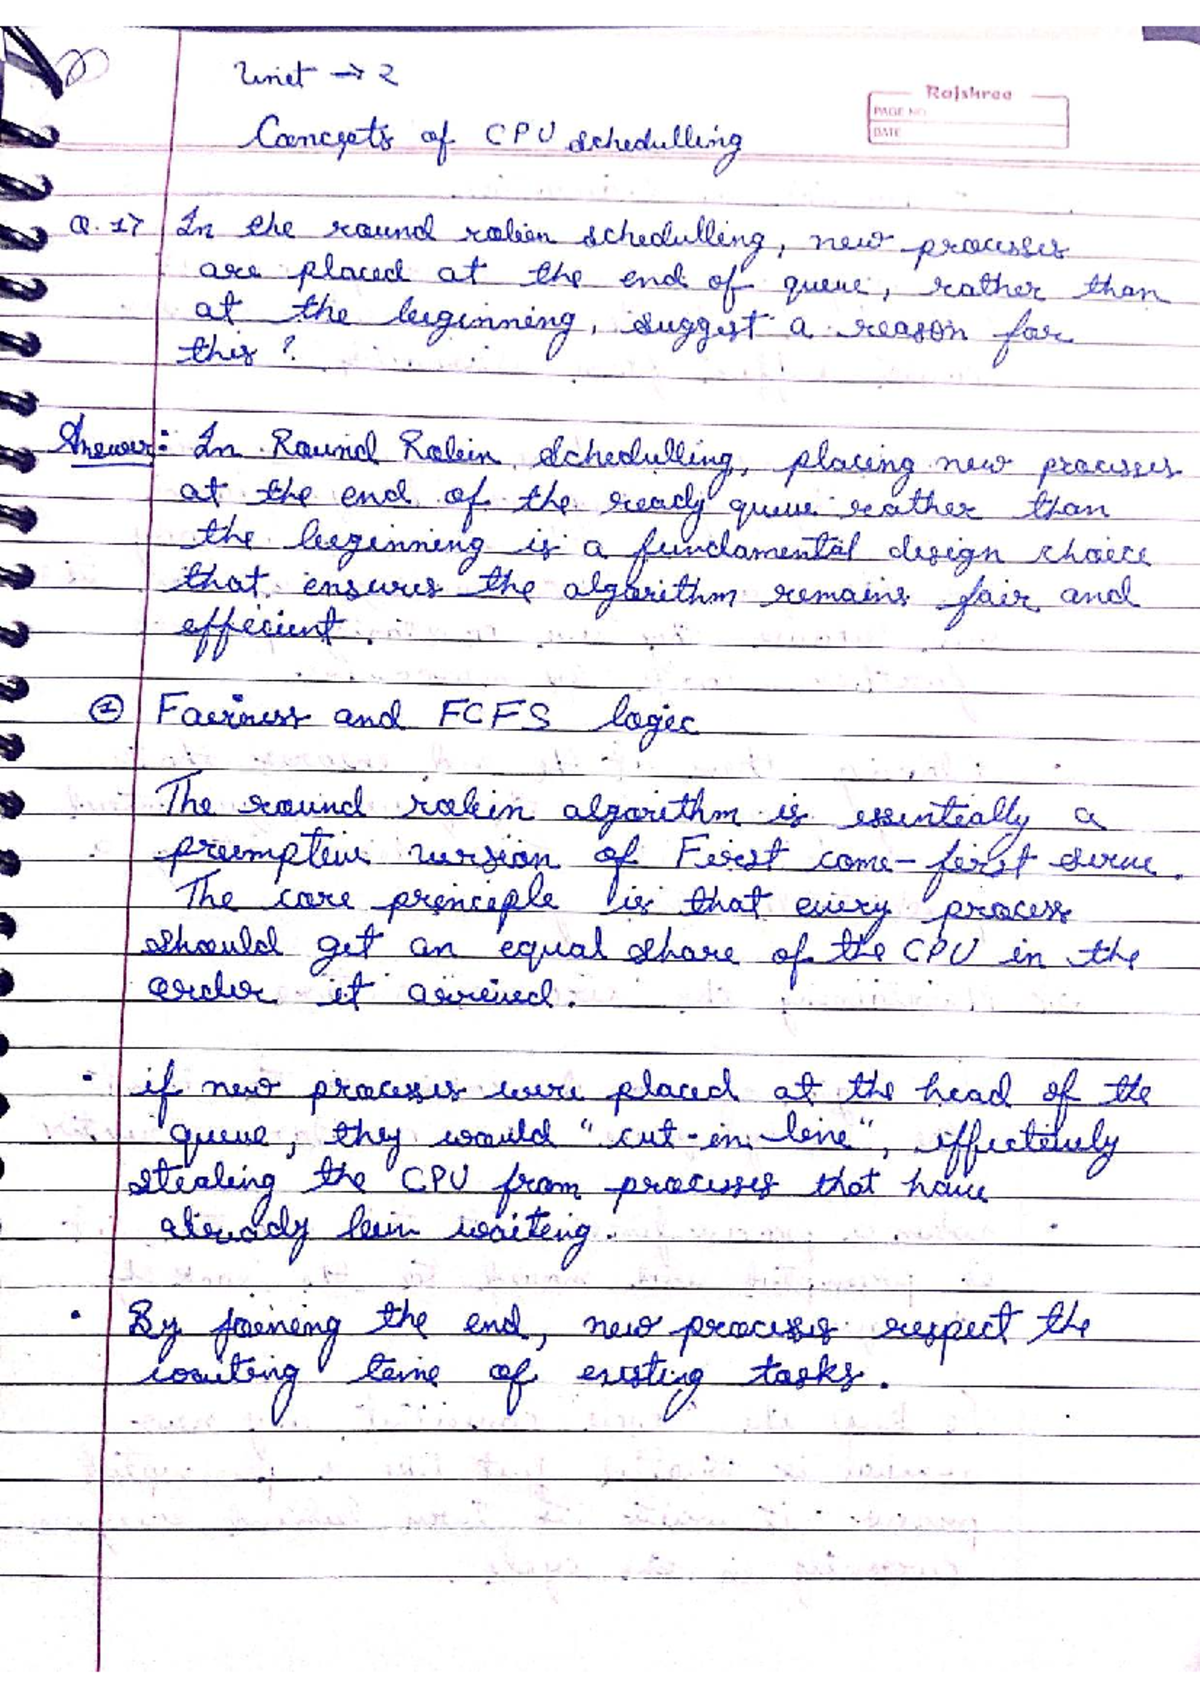 Unit → 2
Rajshree
PAGE NO.
DATE
Concepts of CPU schedulling
Q. 1> In the round robin schedulling, new processes
are placed at the end of queue, rather than
at the beginning, suggest a reason for
this ?
Answer: In Round Robin schedulling, placing new processes
at the end of the ready queue rather than
the beginning is a fundamental design choice
that ensures the algorithm remains fair and
efficient.
① Fairness and FCFS logic
The round robin algorithm is essentially a
preemptive version of First come-first serve.
The core principle is that every process
should get an equal share of the CPU in the
order it arrived.
• if new processes were placed at the head of the
queue, they would "cut-in-line", effectively
stealing the CPU from processes that have
already been waiting.
• By joining the end, new processes respect the
waiting time of existing tasks.